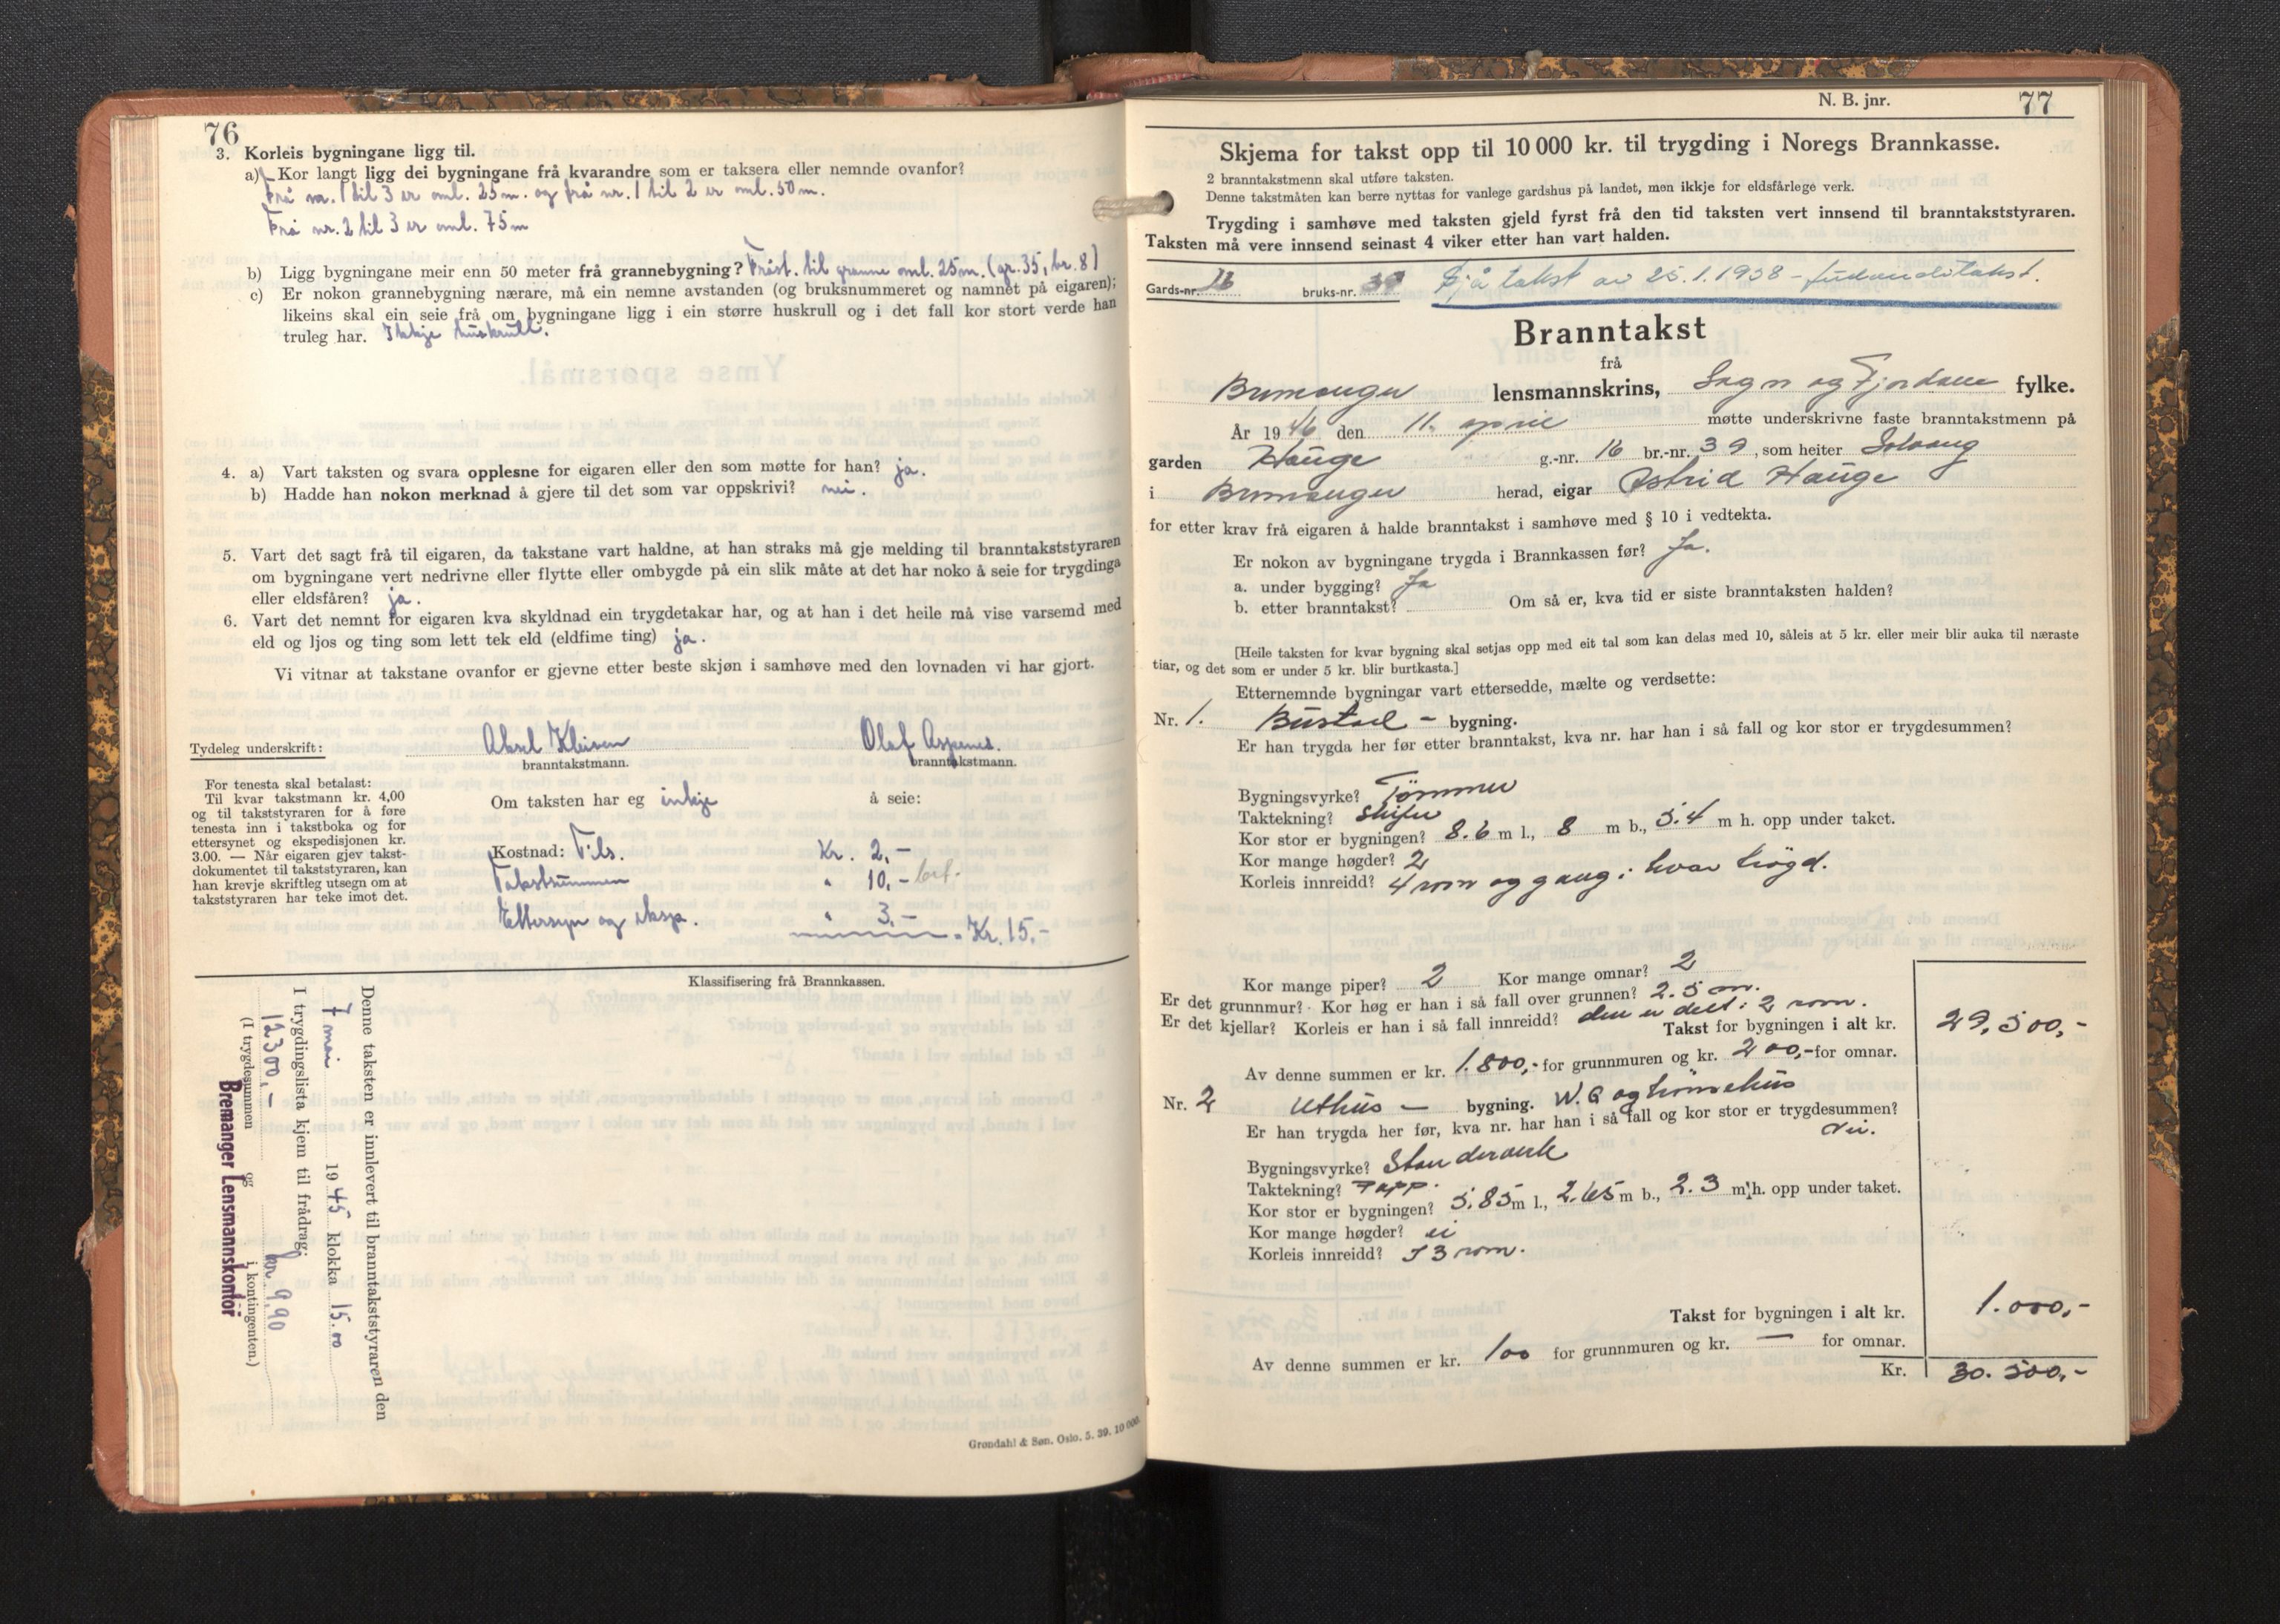 76
3. Korleis bygningane ligg til.
a) Kor langt ligg dei bygningane frå kvarandre som er taksera eller nemnde ovanfor?
Frå nr. 1 til 3 er oml. 25 m. og frå nr. 1 til 2 er oml. 50 m.
Frå nr. 2 til 3 er oml. 75 m
b) Ligg bygningane meir enn 50 meter frå grannebygning? Fråst. til granne oml. 25m. (gr. 35, br. 8)
c) Er nokon grannebygning nærare, må ein nemne avstanden (og bruksnummeret og namnet på eigaren);
likeins skal ein seie frå om bygningane ligg i ein større huskrull og i det fall kor stort verde han
truleg har. Ikkje huskrull.
4. a) Vart taksten og svara opplesne for eigaren eller den som møtte for han? ja.
b) Hadde han nokon merknad å gjere til det som var oppskrivi? nei.
5. Vart det sagt frå til eigaren, da takstane vart haldne, at han straks må gje melding til branntakststyraren
om bygningane vert nedrivne eller flytte eller ombygde på ein slik måte at det har noko å seie for trygdinga
eller eldsfåren? ja.
6. Vart det nemnt for eigaren kva skyldnad ein trygdetakar har, og at han i det heile må vise varsemd med
eld og ljos og ting som lett tek eld (eldfime ting) ja.
Vi vitnar at takstane ovanfor er gjevne etter beste skjøn i samhøve med den lovnaden vi har gjort.
Tydeleg underskrift: Aksel Kleiven Olaf Aspenes.
branntakstmann. branntakstmann.
For tenesta skal betalast:
Til kvar takstmann kr. 4,00
og til takststyraren for å føre
tenesta inn i takstboka og for
ettersynet og ekspedisjonen kr.
3.00. — Når eigaren gjev takst-
dokumentet til takststyraren, kan
han krevje skriftleg utsegn om at
takststyraren har teke imot det.
Om taksten har eg inkje å seie:
Kostnad: Tils. Kr. 2,-
Takstsummen " 10,-
Ettersyn og eksp. " 3,-
Kr. 15,-
Klassifisering frå Brannkassen.
Denne taksten er innlevert til branntakststyraren den
7 mai 1945 klokka 15.00
I trygdingslista kjem til frådrag:
12300,- kr. 9,90
(I trygdesummen og i kontingenten.)
Bremanger Lensmannskontor
Grøndahl & Søn. Oslo. 5. 39. 10 000.
N. B. jnr. 77
Skjema for takst opp til 10 000 kr. til trygding i Noregs Brannkasse.
2 branntakstmenn skal utføre taksten.
Denne takstmåten kan berre nyttas for vanlege gardshus på landet, men ikkje for eldsfårlege verk.
Trygding i samhøve med taksten gjeld fyrst frå den tid taksten vert innsend til branntakststyraren.
Taksten må vere innsend seinast 4 viker etter han vart halden.
Gards-nr. 16 bruks-nr. 39 Sjå takst av 25.1.1958 -
Branntakst
frå
Bremanger lensmannskrins, Sogn og Fjordane fylke.
År 1946 den 11. april møtte underskrivne faste branntakstmenn på
garden Hauge g.-nr. 16 br.-nr. 39, som heiter Solvang
i Bremanger herad, eigar Astrid Hauge
for etter krav frå eigaren å halde branntakst i samhøve med § 10 i vedtekta.
Er nokon av bygningane trygda i Brannkassen før? Ja.
a. under bygging? Ja
b. etter branntakst? Om så er, kva tid er siste branntaksten halden?
[Heile taksten for kvar bygning skal setjas opp med eit tal som kan delas med 10, såleis at 5 kr. eller meir blir auka til næraste
tiar, og det som er under 5 kr. blir burtkasta.]
Etternemnde bygningar vart ettersedde, mælte og verdsette:
Nr. 1. Bustad - bygning.
Er han trygda her før etter branntakst, kva nr. har han i så fall og kor stor er trygdesummen?
Bygningsvyrke? Tømmer
Taktekning? Skifer
Kor stor er bygningen? 8.6 m l., 8 m b., 5.4 m h. opp under taket.
Kor mange høgder? 2
Korleis innreidd? 4 rom og gang i hvar høgd.
Kor mange piper? 2 Kor mange omnar? 2
Er det grunnmur? Kor høg er han i så fall over grunnen? 2.5 m.
Er det kjellar? Korleis er han i så fall innreidd? den er delt i 2 rom.
Takst for bygningen i alt kr. 29,500,-
Av denne summen er kr. 1.800,- for grunnmuren og kr. 200,- for omnar.
Nr. 2 Uthus — bygning. W.C. og hønsehus
Er han trygda her før, kva nr. har han i så fall og kor stor er trygdesummen?
Nei.
Bygningsvyrke? Standerverk
Taktekning? Papp.
Kor stor er bygningen? 5.85 m l., 2.65 m b., 2.3 m h. opp under taket.
Kor mange høgder? ei
Korleis innreidd? I 3 rom.
Takst for bygningen i alt kr. 1.000,-
Av denne summen er kr. 100 for grunnmuren og kr. — for omnar.
Kr. 30.500,-